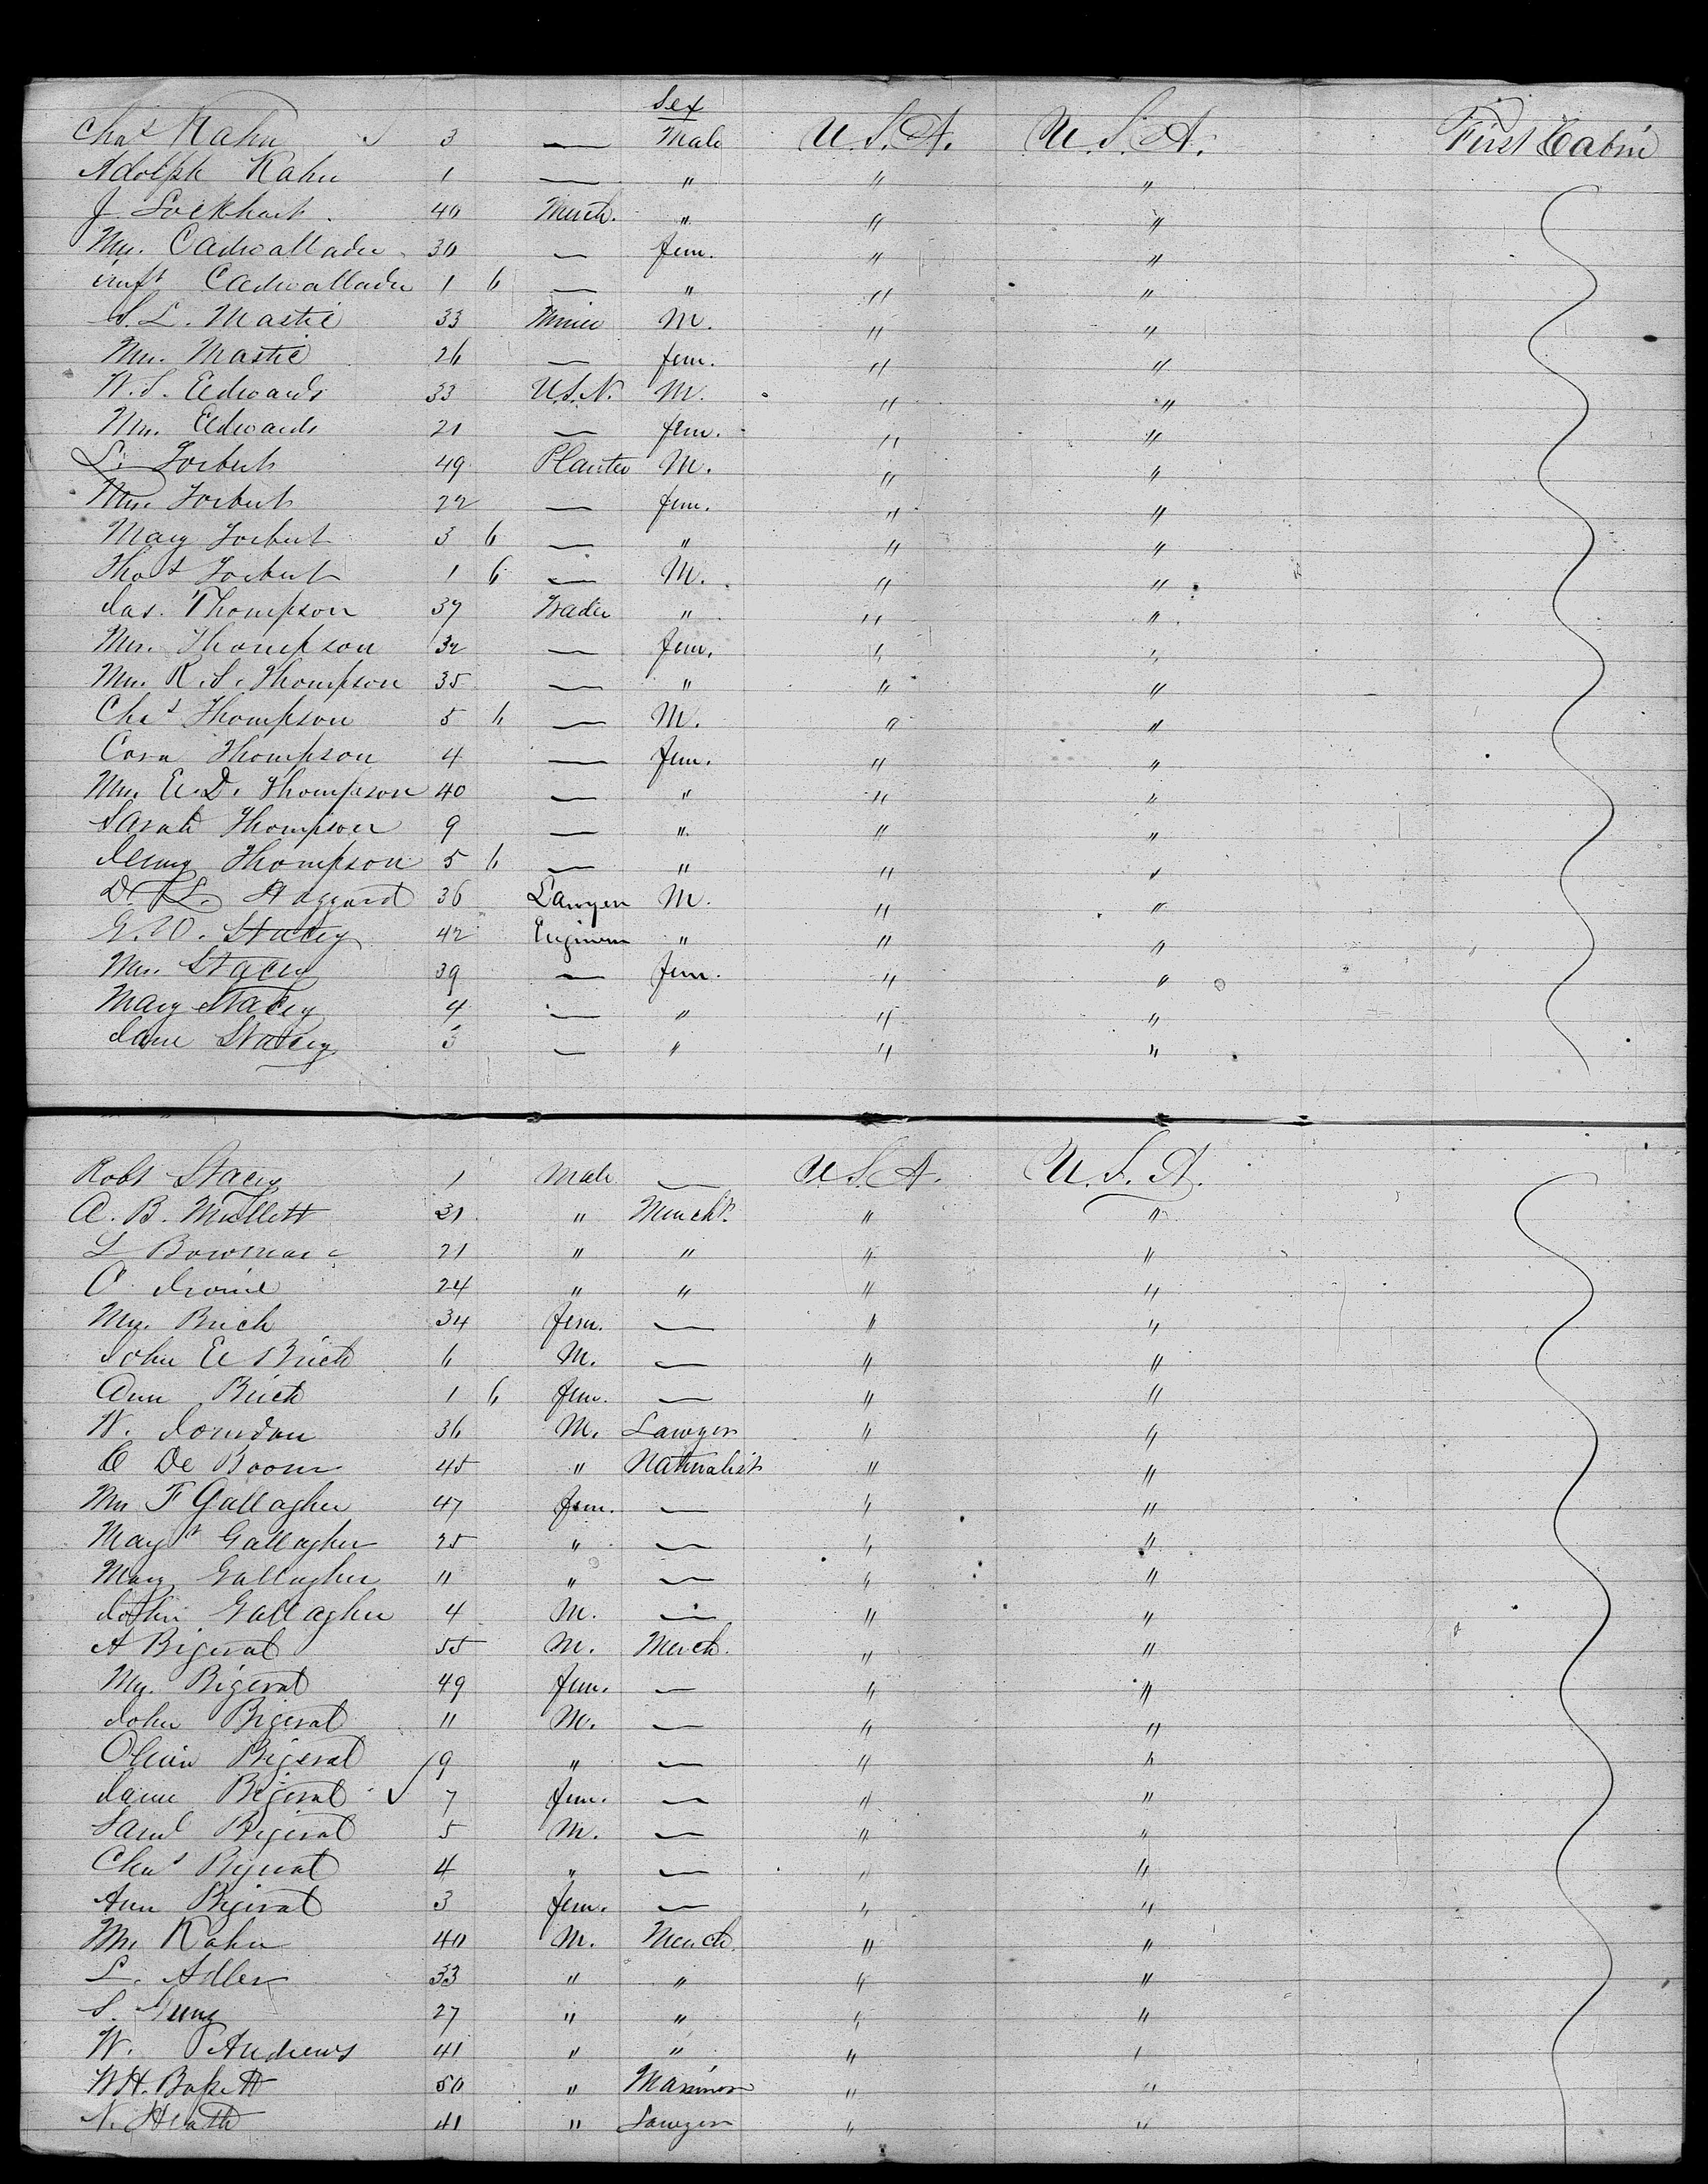 Sex
Chas Kahn 3 — Male U.S.A. U.S.A. First Cabin
Adolph Kahn 1 — " " "
J. Lockhart. 40 Merch. " " "
Mrs. Cadwallader 30 — fem. " "
inft Cadwallader 1 6 — " " "
S. L. Mastic 33 Miner M. " "
Mrs. Mastic 26 — fem. " "
W. S. Edwards 33 U.S.N. M. " "
Mrs. Edwards 21 — fem. " "
L. Torbert 49 Planter M. " "
Mrs. Torbert 22 — fem. " "
Mary Torbert 3 6 — " " "
Thos Torbert 1 6 — M. " "
Jas. Thompson 37 Trader " " "
Mrs. Thompson 32 — fem. " "
Mrs. R. S. Thompson 35 — " " "
Chas Thompson 5 6 — M. " "
Cora Thompson 4 — fem. " "
Mrs. E. D. Thompson 40 — " " "
Sarah Thompson 9 — " " "
Jenny Thompson 5 6 — " " "
D. L. Haggard 36 Lawyer M. " "
G. W. Stacey 42 Engineer " " "
Mrs. Stacey 39 — fem. " "
Mary Stacey 4 — " " "
Jane Stacey 3 — " " "
Robt Stacey 1 Male — U.S.A. U.S.A.
A. B. Mullett 31 " Mercht. " "
L Bowman 21 " " " "
C. Irvine 24 " " " "
Mrs. Birch 34 fem. — " "
John E Birch 6 M. — " "
Ann Birch 1 6 fem. — " "
W. 36 M. Lawyer " "
C De Boom 45 " Naturalist " "
Mrs F Gallagher 47 fem. — " "
Magt Gallagher 25 " — " "
Mary Gallagher 11 " — " "
John Gallagher 4 M. — " "
A Bigeral 55 M. Merch. " "
Mrs. Bigeral 49 fem. — " "
John Bigeral 11 M. — " "
Bigeral 9 " — " "
Jane Bigeral 7 fem. — " "
Saml Bigeral 5 M. — " "
Chas Bigeral 4 " — " "
Ann Bigeral 3 fem. — " "
Kahn 40 M. Merch. " "
L. Adler 33 " " " "
S. 27 " " " "
W. Andrews 41 " " " "
W H. Bassett 50 " " "
N. Heath 41 " Lawyer " "